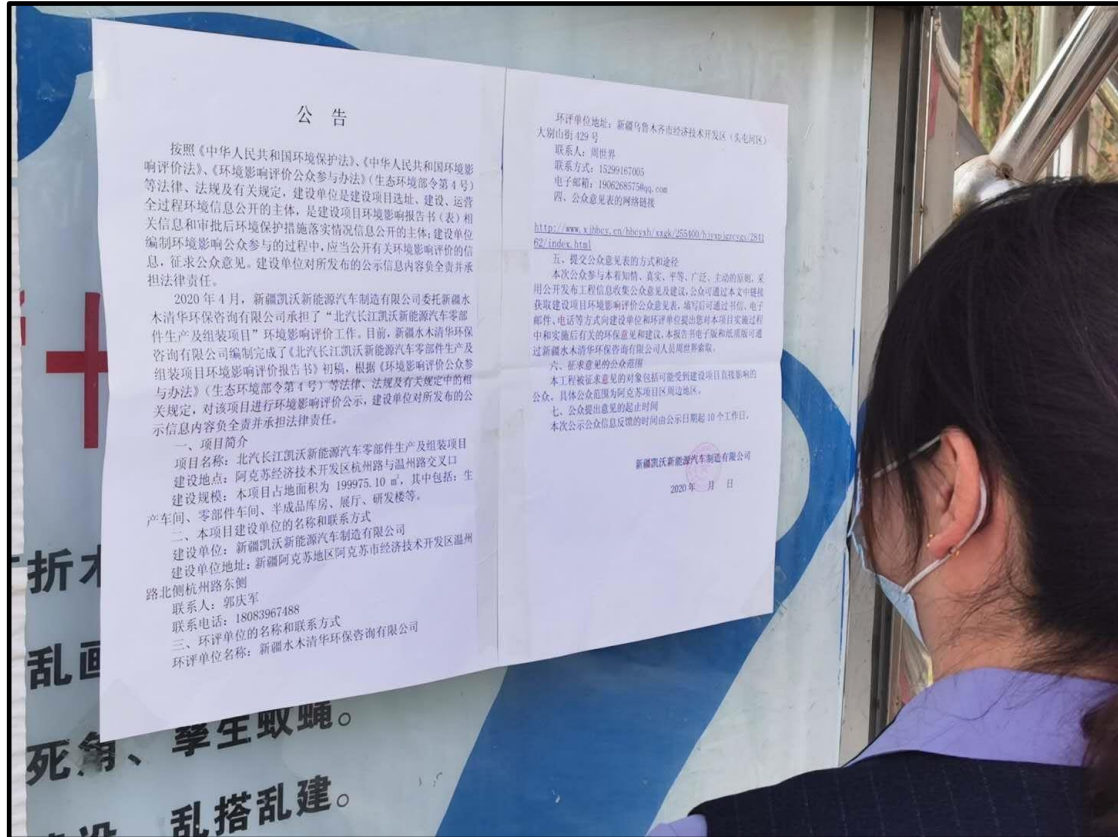 公 告
按照《中华人民共和国环境保护法》、《中华人民共和国环境影
响评价法》、《环境影响评价公众参与办法》（生态环境部令第4号）
等法律、法规及有关规定，建设单位是建设项目选址、建设、运营
全过程环境信息公开的主体，是建设项目环境影响报告书（表）相
关信息和审批后环境保护措施落实情况信息公开的主体；建设单位
编制环境影响公众参与的过程中，应当公开有关环境影响评价的信
息，征求公众意见。建设单位对所发布的公示信息内容负全责并承
担法律责任。
2020年4月，新疆凯沃新能源汽车制造有限公司委托新疆水
木清华环保咨询有限公司承担了“北汽长江凯沃新能源汽车零部
件生产及组装项目”环境影响评价工作。目前，新疆水木清华环保
咨询有限公司编制完成了《北汽长江凯沃新能源汽车零部件生产及
组装项目环境影响评价报告书》初稿，根据《环境影响评价公众参
与办法》（生态环境部令第4号）等法律、法规及有关规定中的相
关规定，对该项目进行环境影响评价公示，建设单位对所发布的公
示信息内容负全责并承担法律责任。
一、项目简介
项目名称：北汽长江凯沃新能源汽车零部件生产及组装项目
建设地点：阿克苏经济技术开发区杭州路与温州路交叉口
建设规模：本项目占地面积为199975.10㎡，其中包括：生
产车间、零部件车间、半成品库房、展厅、研发楼等。
二、本项目建设单位的名称和联系方式
建设单位：新疆凯沃新能源汽车制造有限公司
建设单位地址：新疆阿克苏地区阿克苏市经济技术开发区温州
路北侧杭州路东侧
联系人：郭庆军
联系电话：18083967488
三、环评单位的名称和联系方式
环评单位名称：新疆水木清华环保咨询有限公司
环评单位地址：新疆乌鲁木齐市经济技术开发区（头屯河区）
大别山街429号
联系人：周世界
联系方式：15299167005
电子邮箱：1906268575@qq.com
四、公众意见表的网络链接
五、提交公众意见表的方式和途径
本次公众参与本着知情、真实、平等、广泛、主动的原则，采
用公开发布工程信息收集公众意见及建议，公众可通过本文中链接
获取建设项目环境影响评价公众意见表，填写后可通过书信、电子
邮件、电话等方式向建设单位和环评单位提出您对本项目实施过程
中和实施后有关的环保意见和建议，本报告书电子版和纸质版可通
过新疆水木清华环保咨询有限公司人员周世界索取。
六、征求意见的公众范围
本工程被征求意见的对象包括可能受到建设项目直接影响的
公众，具体公众范围为阿克苏项目区周边地区。
七、公众提出意见的起止时间
本次公示公众信息反馈的时间由公示日期起10个工作日。
新疆凯沃新能源汽车制造有限公司
2020年 月 日
折木
乱画
死角、孳生蚊蝇。
乱搭乱建。